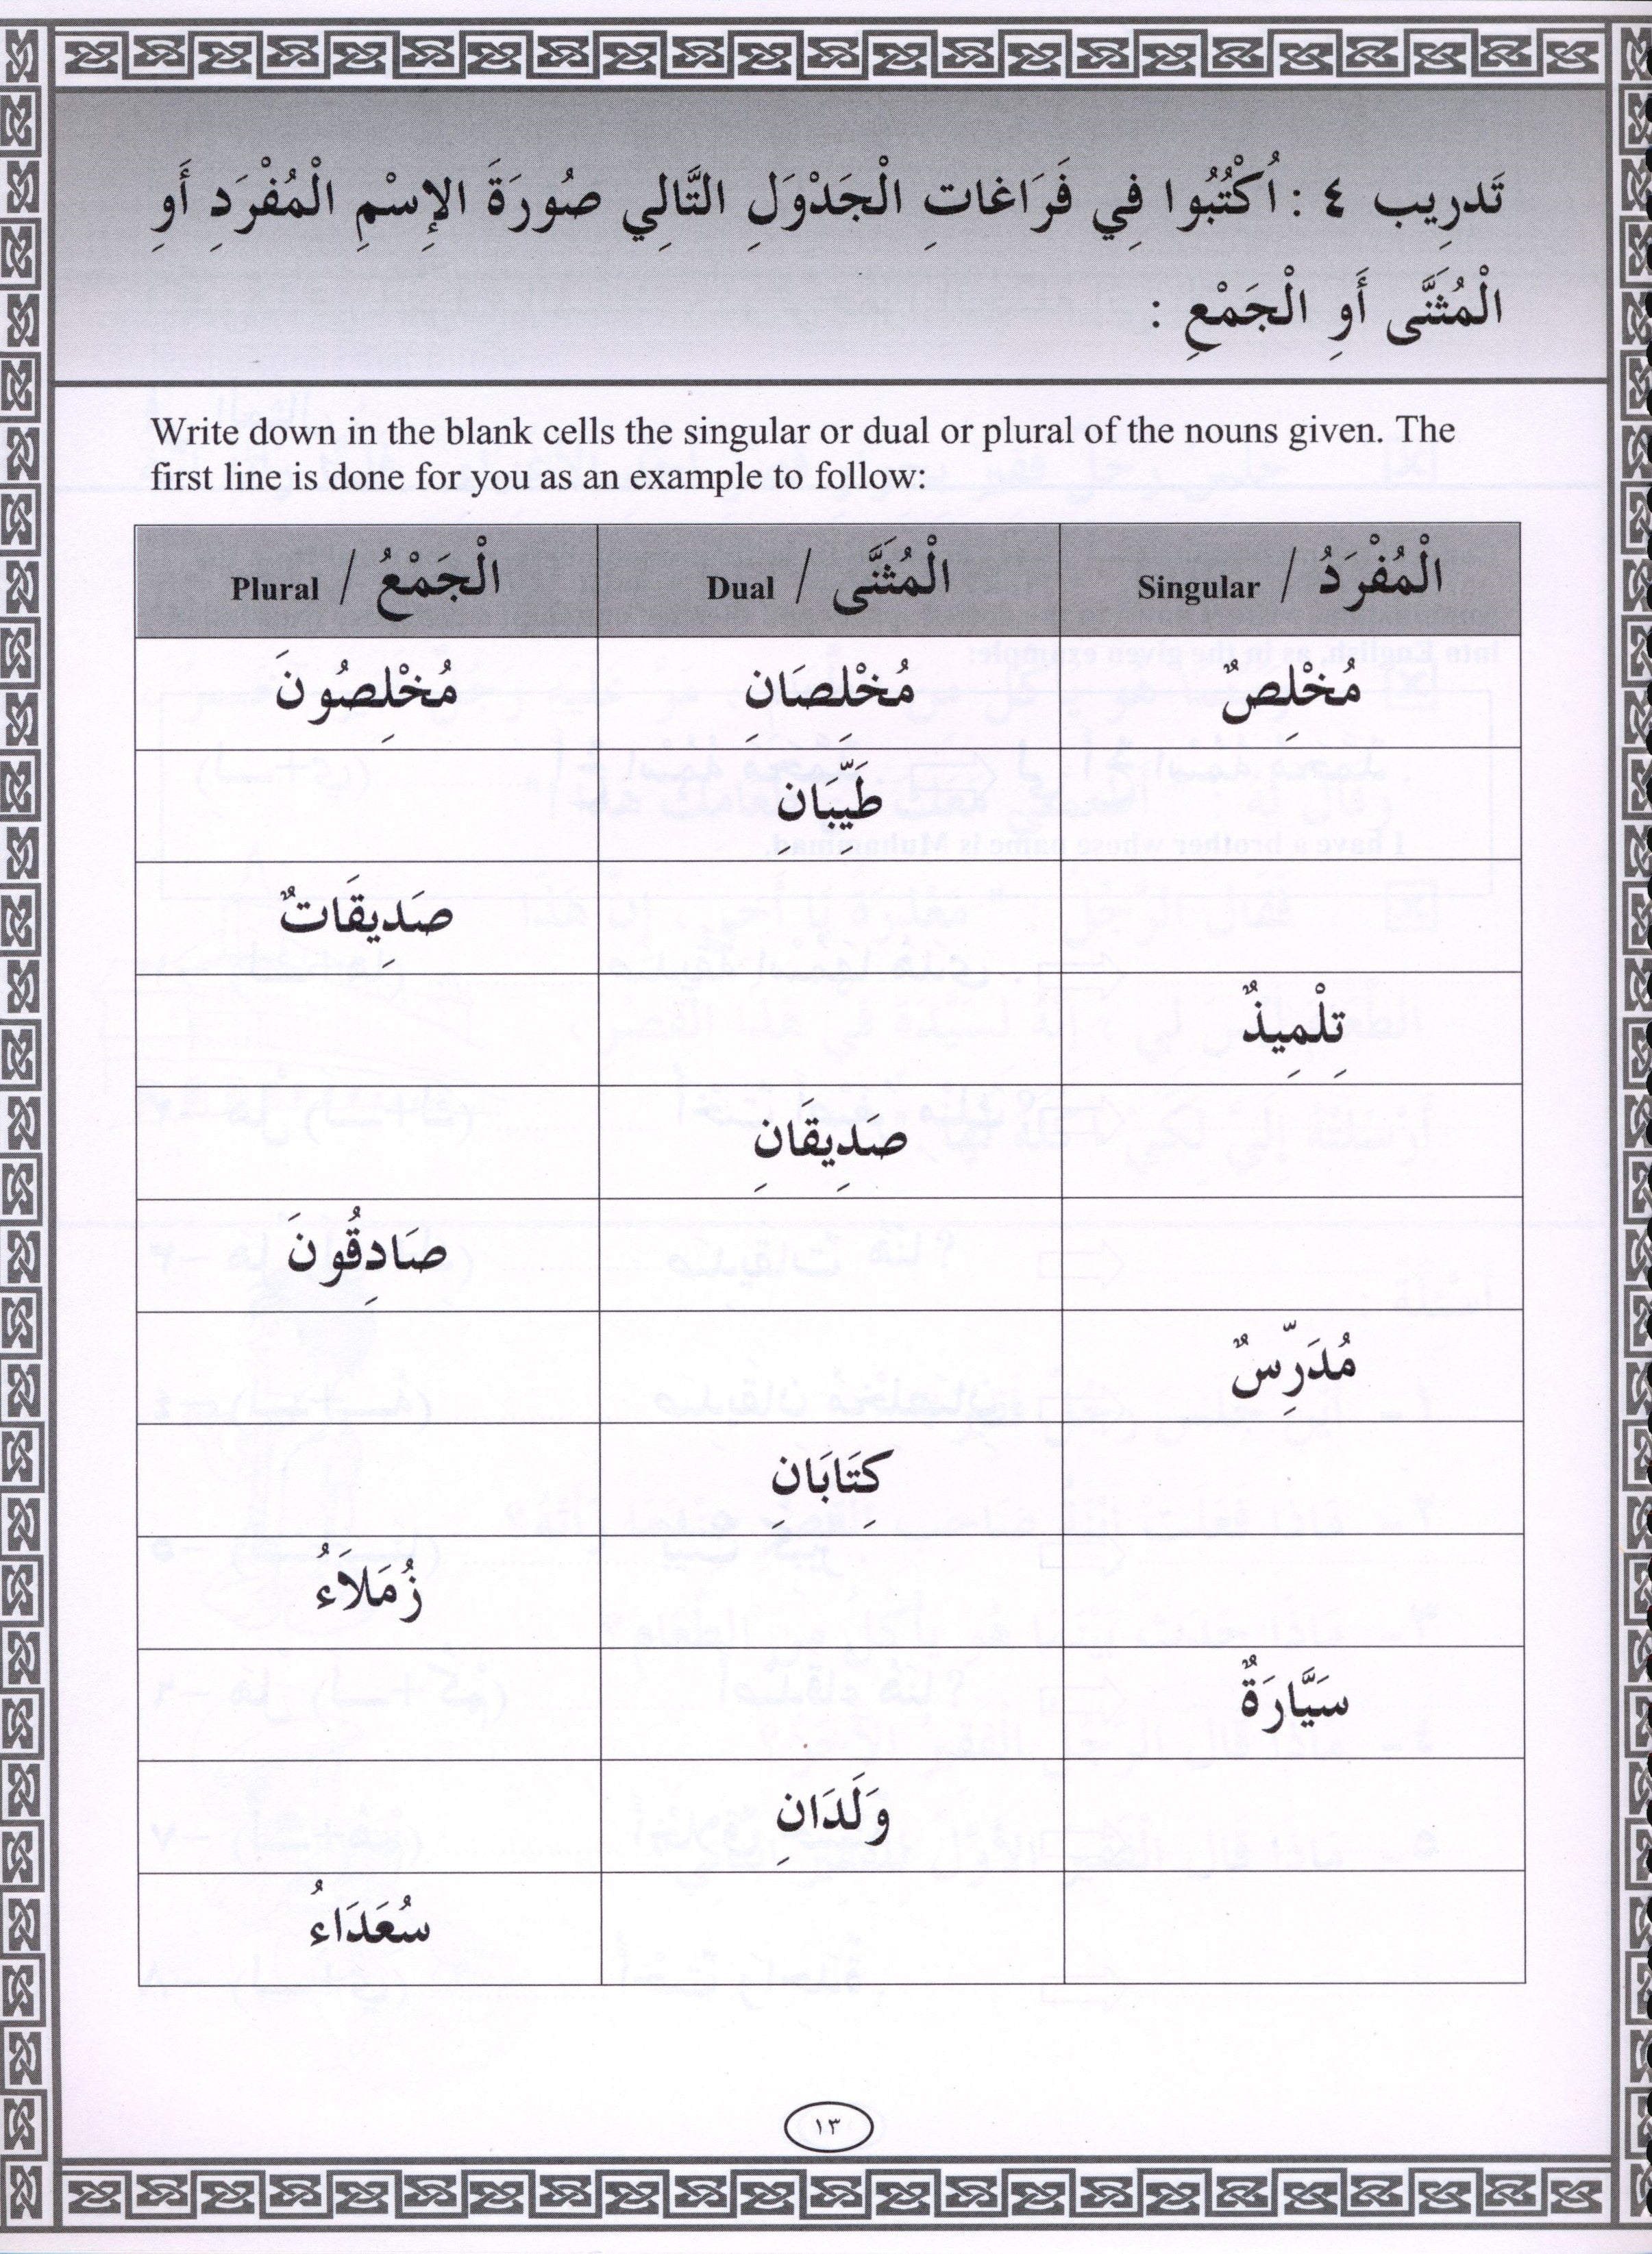 تَدرِيب ٤ : اُكْتُبُوا فِي فَرَاغاتِ الْجَدْوَلِ التَّالِي صُورَةَ الإِسْمِ الْمُفْرَدِ أَوِ
الْمُثَنَّى أَوِ الْجَمْعِ :
Write down in the blank cells the singular or dual or plural of the nouns given. The
first line is done for you as an example to follow:
الْمُفْرَدُ / Singular الْمُثَنَّى / Dual الْجَمْعُ / Plural
مُخْلِصٌ مُخْلِصَانِ مُخْلِصُونَ
طَيِّبَانِ
صَدِيقَاتٌ
تِلْمِيذٌ
صَدِيقَانِ
صَادِقُونَ
مُدَرِّسٌ
كِتَابَانِ
زُمَلَاَءُ
سَيَّارَةٌ
وَلَدَانِ
سُعَدَاءُ
١٣